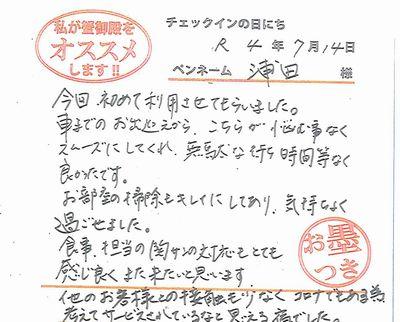 私が蟹御殿を
オススメ
します!!
チェックインの日にち
R 4 年 7 月 14 日
ペンネーム 浦田 様
今回 初めて利用させてもらいました。
車までのお出迎えから、こちらが悩む事なく
スムーズにしてくれ、無駄な待ち時間等なく
良かったです。
お部屋の掃除もキレイにしてあり、気持ちよく
過ごせました。
食事、担当の関サンの対応もとても
感じ良く また来たいと思います
お墨
つき
他のお客様との接触もりなく コロナでもある為
考えてサービスされているなと思える宿でした。